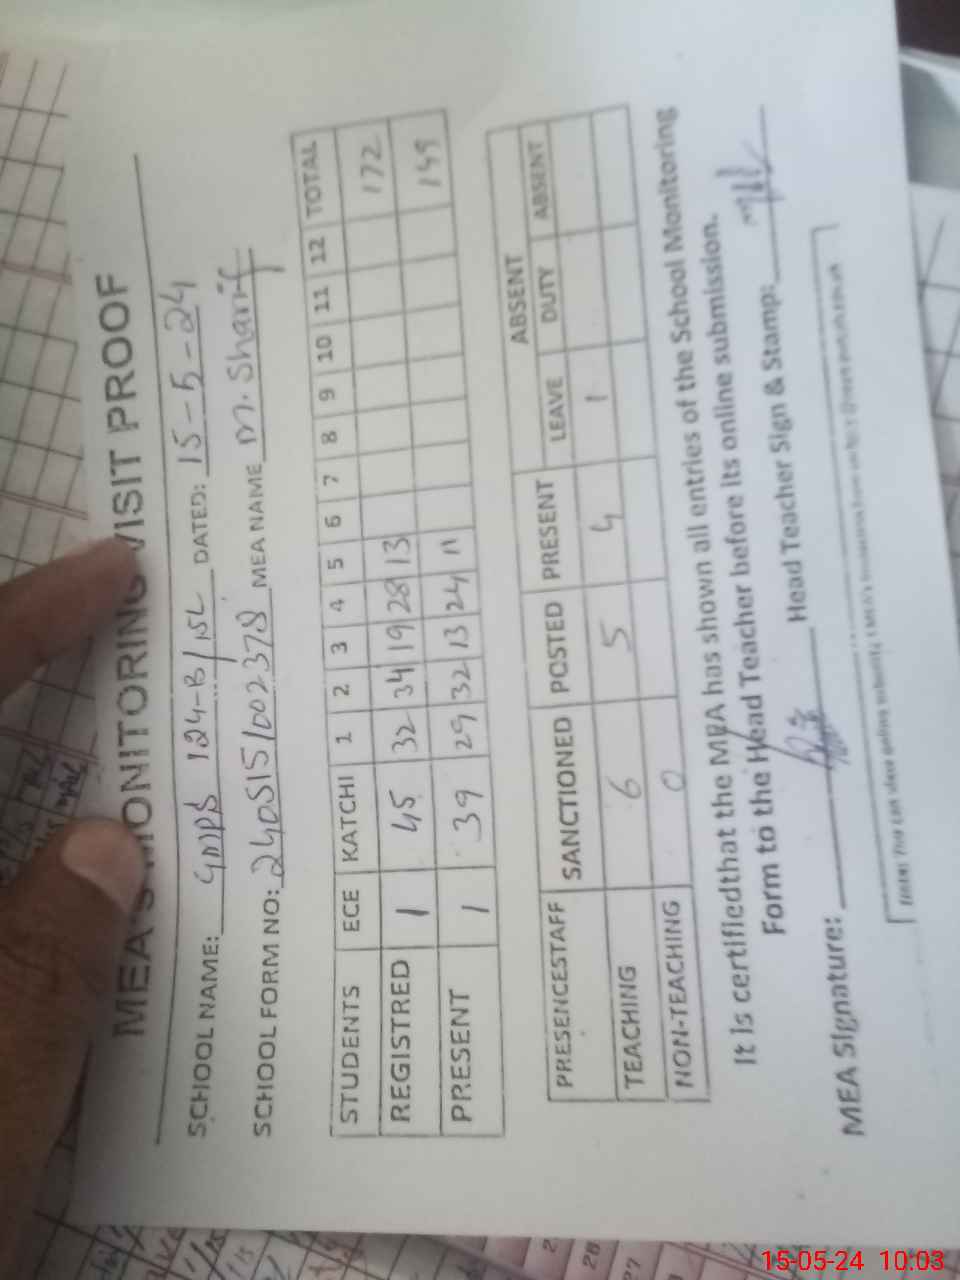 MEA'S MONITORING VISIT PROOF
SCHOOL NAME: GMPS 124-B/15L DATED: 15-5-24
SCHOOL FORM NO: 240515/002378 MEA NAME M. Sharif
STUDENTS ECE KATCHI 1 2 3 4 5 6 7 8 9 10 11 12 TOTAL
REGISTRED 1 45 32 34 19 28 13 172
PRESENT 1 39 29 32 13 24 11 149
ABSENT
PRESENCESTAFF SANCTIONED POSTED PRESENT LEAVE DUTY ABSENT
TEACHING 6 5 4 1
NON-TEACHING 0
It is certifiedthat the MEA has shown all entries of the School Monitoring
Form to the Head Teacher before its online submission.
MEA Signature: Head Teacher Sign & Stamp:
15-05-24 10:03